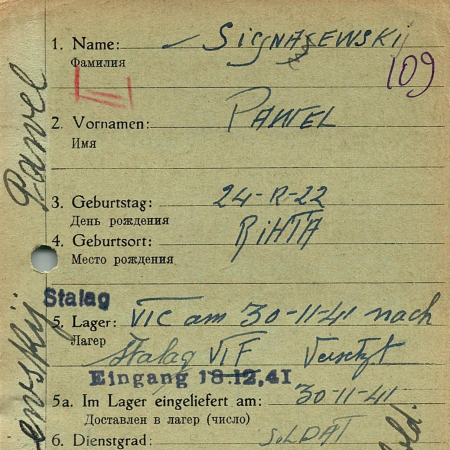 1. Name: Signasewskij
Фамилия
109
2. Vornamen: PAWEL
Имя
3. Geburtstag: 24-R-22
День рождения
4. Geburtsort: RiHTA
Место рождения
Stalag
5. Lager: VIC am 30-11-41 nach
Лагер
Stalag VIF Versetzt
Eingang 18.12.41
5a. Im Lager eingeliefert am: 30-11-41
Доставлен в лагер (число)
6. Dienstgrad: SOLDAT
Pawel
ewskij
old.